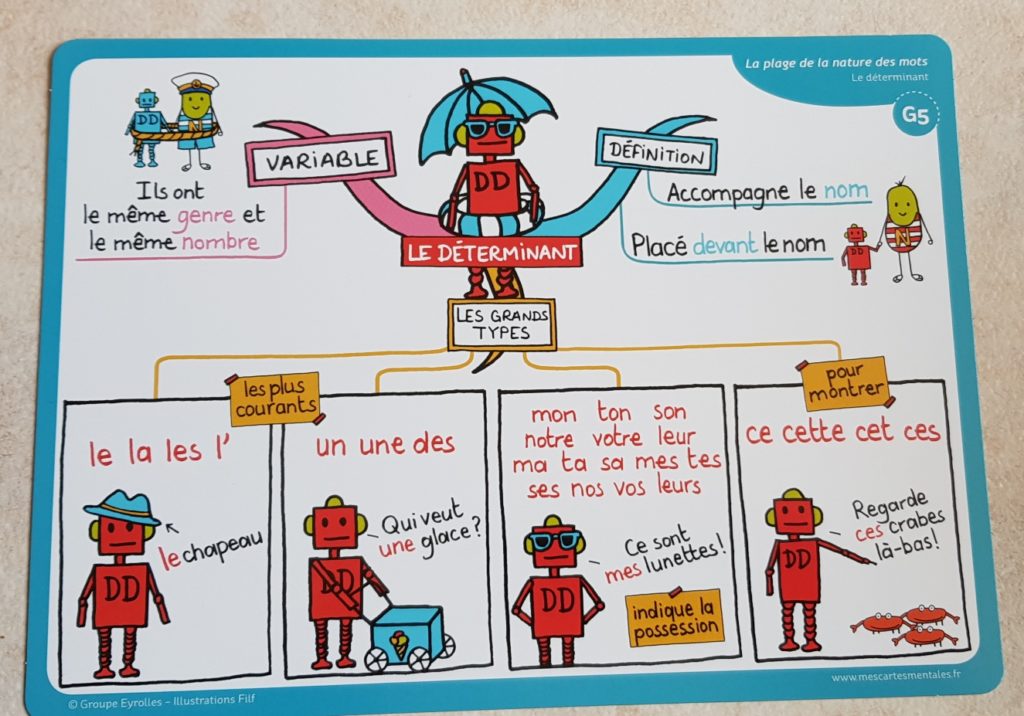 La plage de la nature des mots
Le déterminant
G5
DD
N
VARIABLE
Ils ont
le même genre et
le même nombre
DD
LE DÉTERMINANT
DÉFINITION
Accompagne le nom
Placé devant le nom
DD
N
LES GRANDS
TYPES
les plus
courants
pour
montrer
le la les l'
le chapeau
DD
un une des
Qui veut
une glace?
DD
mon ton son
notre votre leur
ma ta sa mes tes
ses nos vos leurs
Ce sont
mes lunettes!
DD
indique la
possession
ce cette cet ces
Regarde
ces crabes
là-bas!
DD
© Groupe Eyrolles – Illustrations Filf
www.mescartesmentales.fr